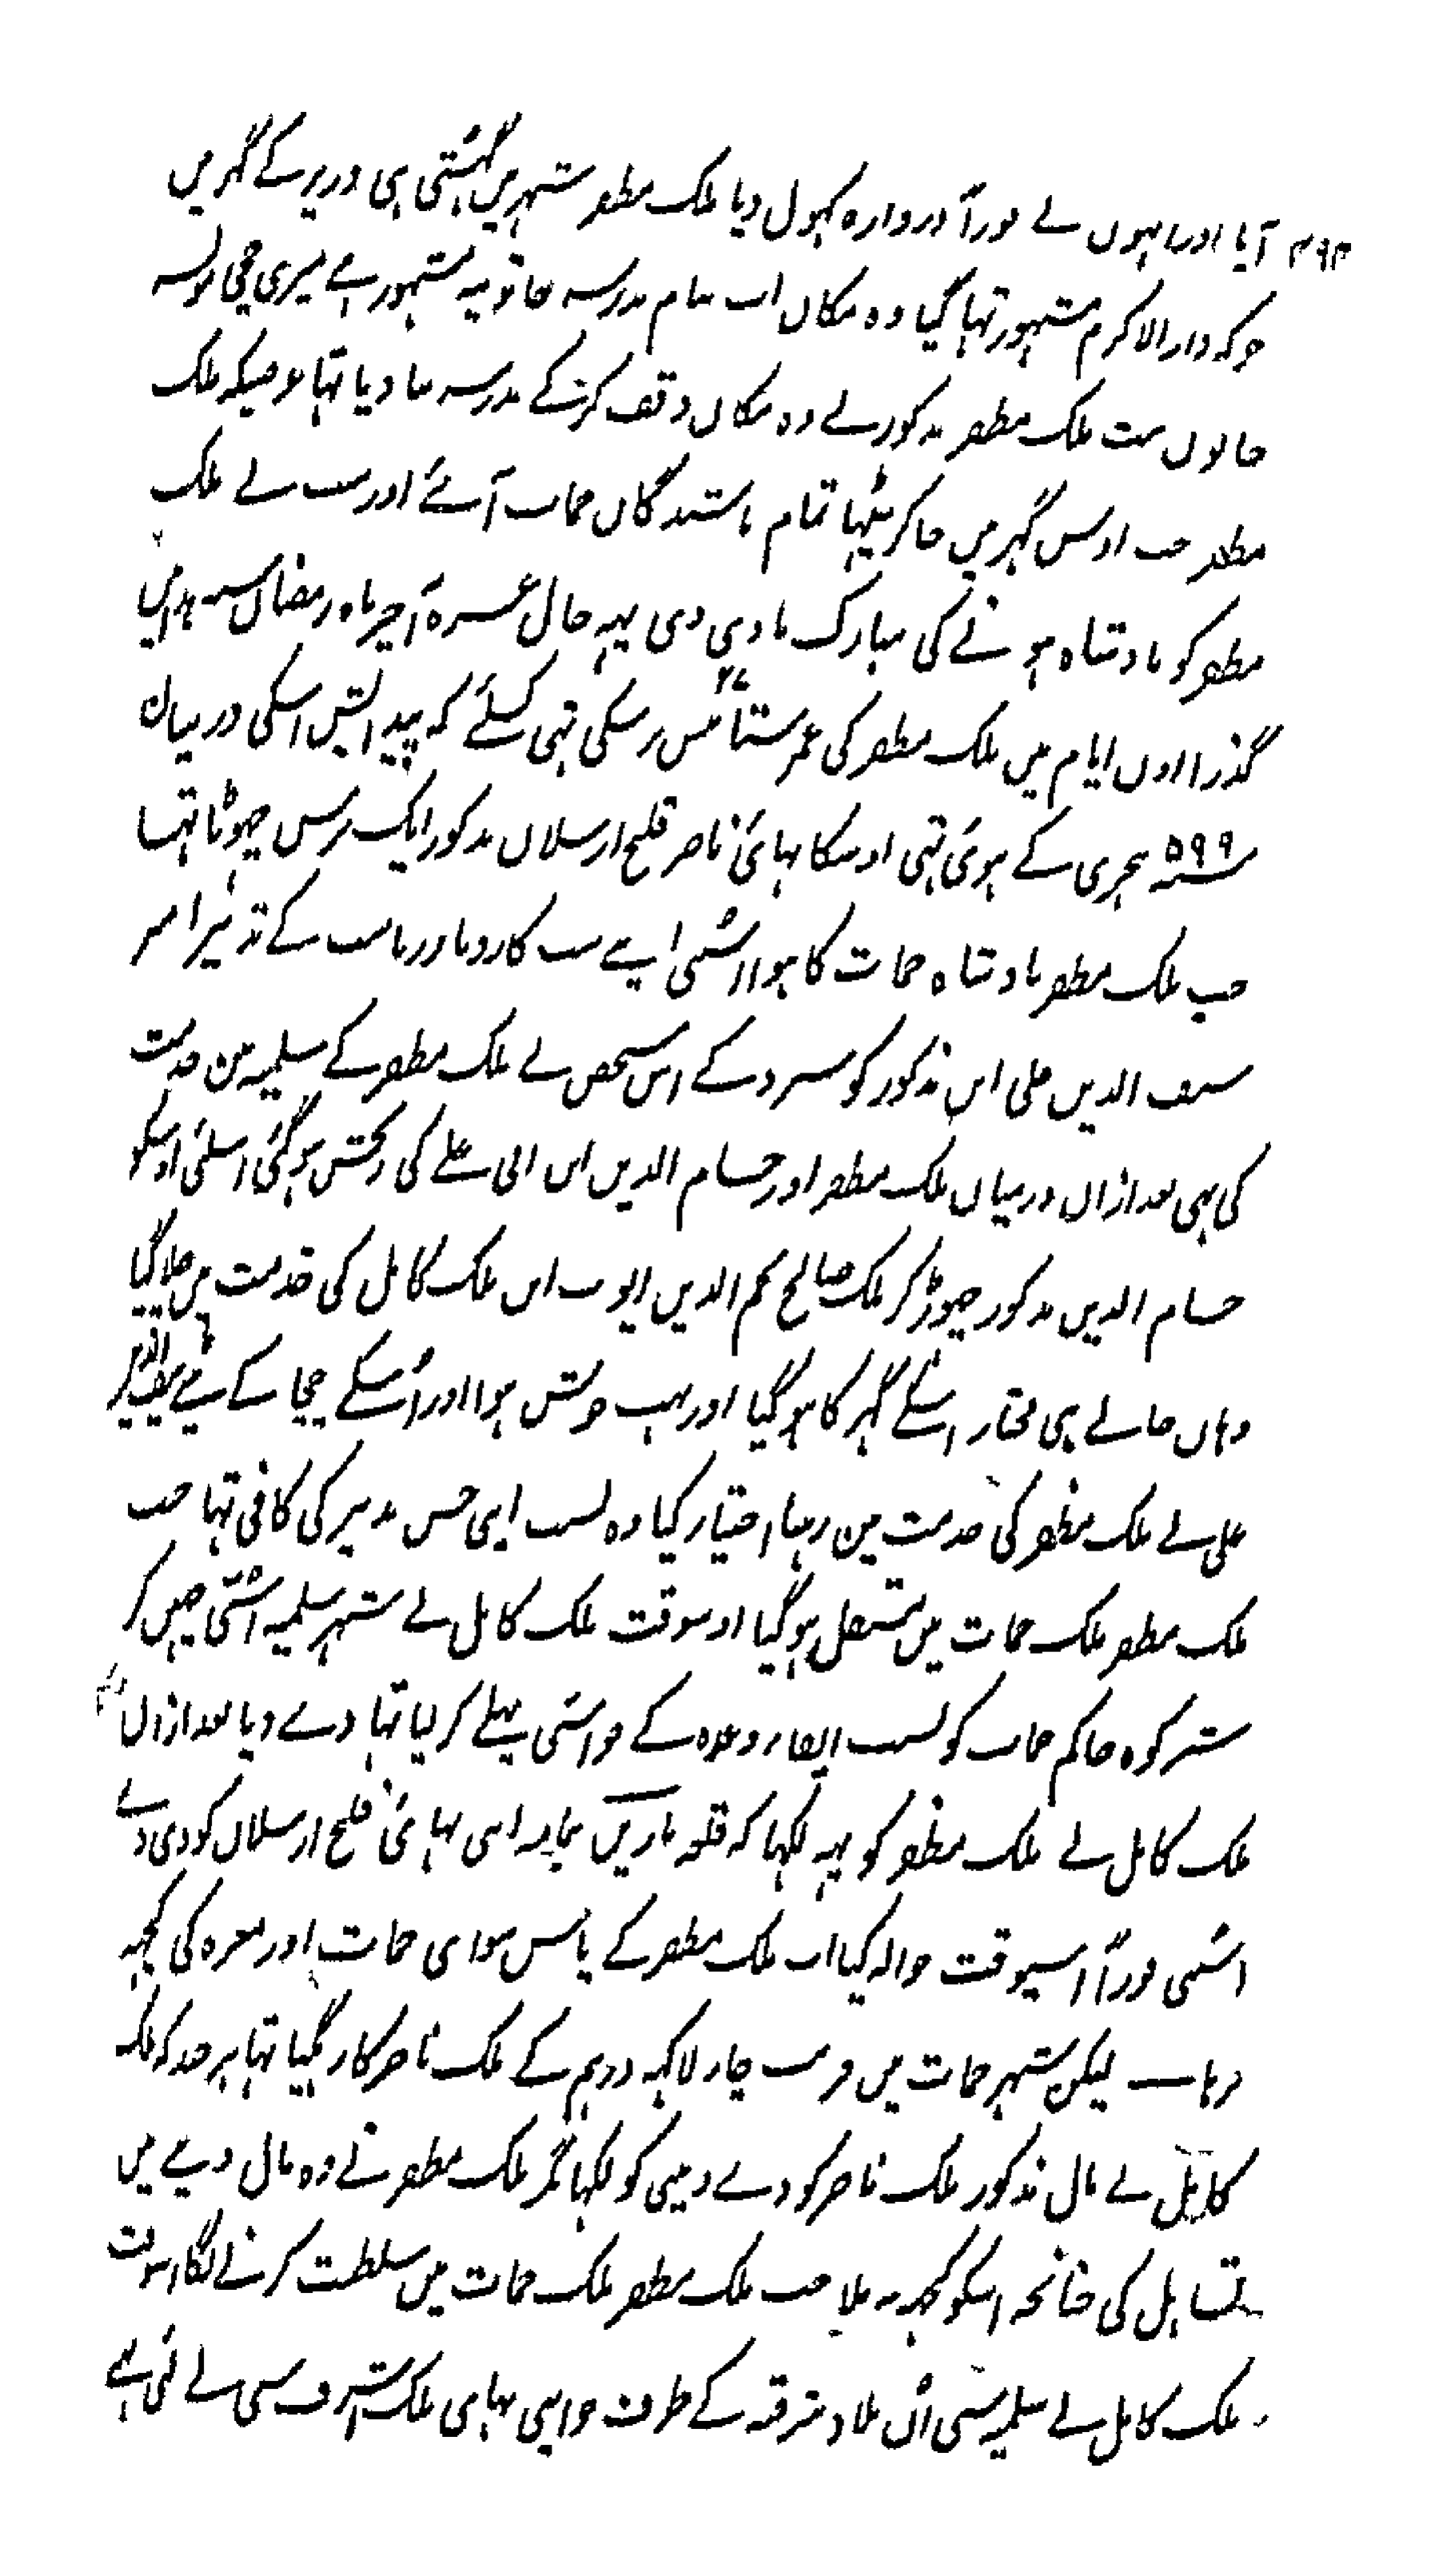 ۳۹۳ آیا اور انہوں نے فوراً دروازہ کہول دیا ملک مظفر شہر میں گہستی ہی وزیر کے گہر میں
جو کہ دار الاکرم مشہور تہا گیا وہ مکان اب بنام مدرسہ خاتونیہ مشہور ہے میری چچی مونسہ
خاتون بنت ملک مظفر مذکور نے وہ مکان وقف کرکے مدرسہ بنا دیا تہا غرضیکہ ملک
مظفر جب اوس گہر میں جاکر بیٹہا تمام باشندگان حمات آئے اور سب نے ملک
مظفر کو بادشاہ ہونے کی مبارک بادی دی یہہ حال عشرہ آخیر ماہ رمضان سنہ ہذا میں
گذرا اون ایام میں ملک مظفر کی عمر ستائیس ۲۷ برسکی تہی کسلئے کہ پیدائش اسکی درمیان
سنہ ۵۹۹ ہجری کے ہوئی تہی اوسکا بہائی ناصر قلیج ارسلان مذکور ایک برس چہوٹا تہا
جب ملک مظفر بادشاہ حمات کا ہوا اسنی اپنے سب کاروبار ریاست کے تدبیر امیر
سیف الدین علی ابن مذکور کو سپرد کے اس شخص نے ملک مظفر کے سلمیہ من خدمت
کی تہی بعد ازان درمیان ملک مظفر اور حسام الدین ابن ابی علے کی رنجش ہوگئی اسلئی اوسکو
حسام الدین مذکور چہوڑکر ملک صالح نجم الدین ایوب ابن ملک کامل کی خدمت میں چلا گیا
وہاں جاتے ہی مختار اسکے گہر کا ہوگیا اور بہت خوش ہوا اور اُسکے چچا کے بیٹے سیف الدین
علی نے ملک مظفر کی خدمت مین رہنا اختیار کیا وہ بسبب اپنی حسن تدبیر کی کافی تہا جب
ملک مظفر ملک حمات میں مستقل ہوگیا اوسوقت ملک کامل نے شہر سلمیہ اسّی چہین کر
شیرکوہ حاکم حمات کو بسبب ایفاء وعدہ کے جو اسّی پہلے کرلیا تہا دے دیا بعد ازان
ملک کامل نے ملک مظفر کو یہہ لکہا کہ قلعہ بارین اپنی بہائی قلیج ارسلان کو دی دے
اسنی فوراً اسیوقت حوالہ کیا اب ملک مظفر کے پاس سوای حمات اور معرہ کی کچہہ
نرہا — لیکن شہر حمات میں قریب چار لاکہہ درہم کے ملک ناصر کا رہگیا تہا ہر چند کہ ملک
کامل نے مال مذکور ملک ناصر کو دے دینی کو لکہا مگر ملک مظفر نے وہ مال دینے میں
تساہل کی چنانچہ اسکو کچہہ نہ ملا جب ملک مظفر ملک حمات میں سلطنت کرنے لگا اسوقت
ملک کامل نے سلمیہ سی ان بلاد شرقیہ کے طرف جو اپنی بہائی ملک اشرف سی لے لئی تہے